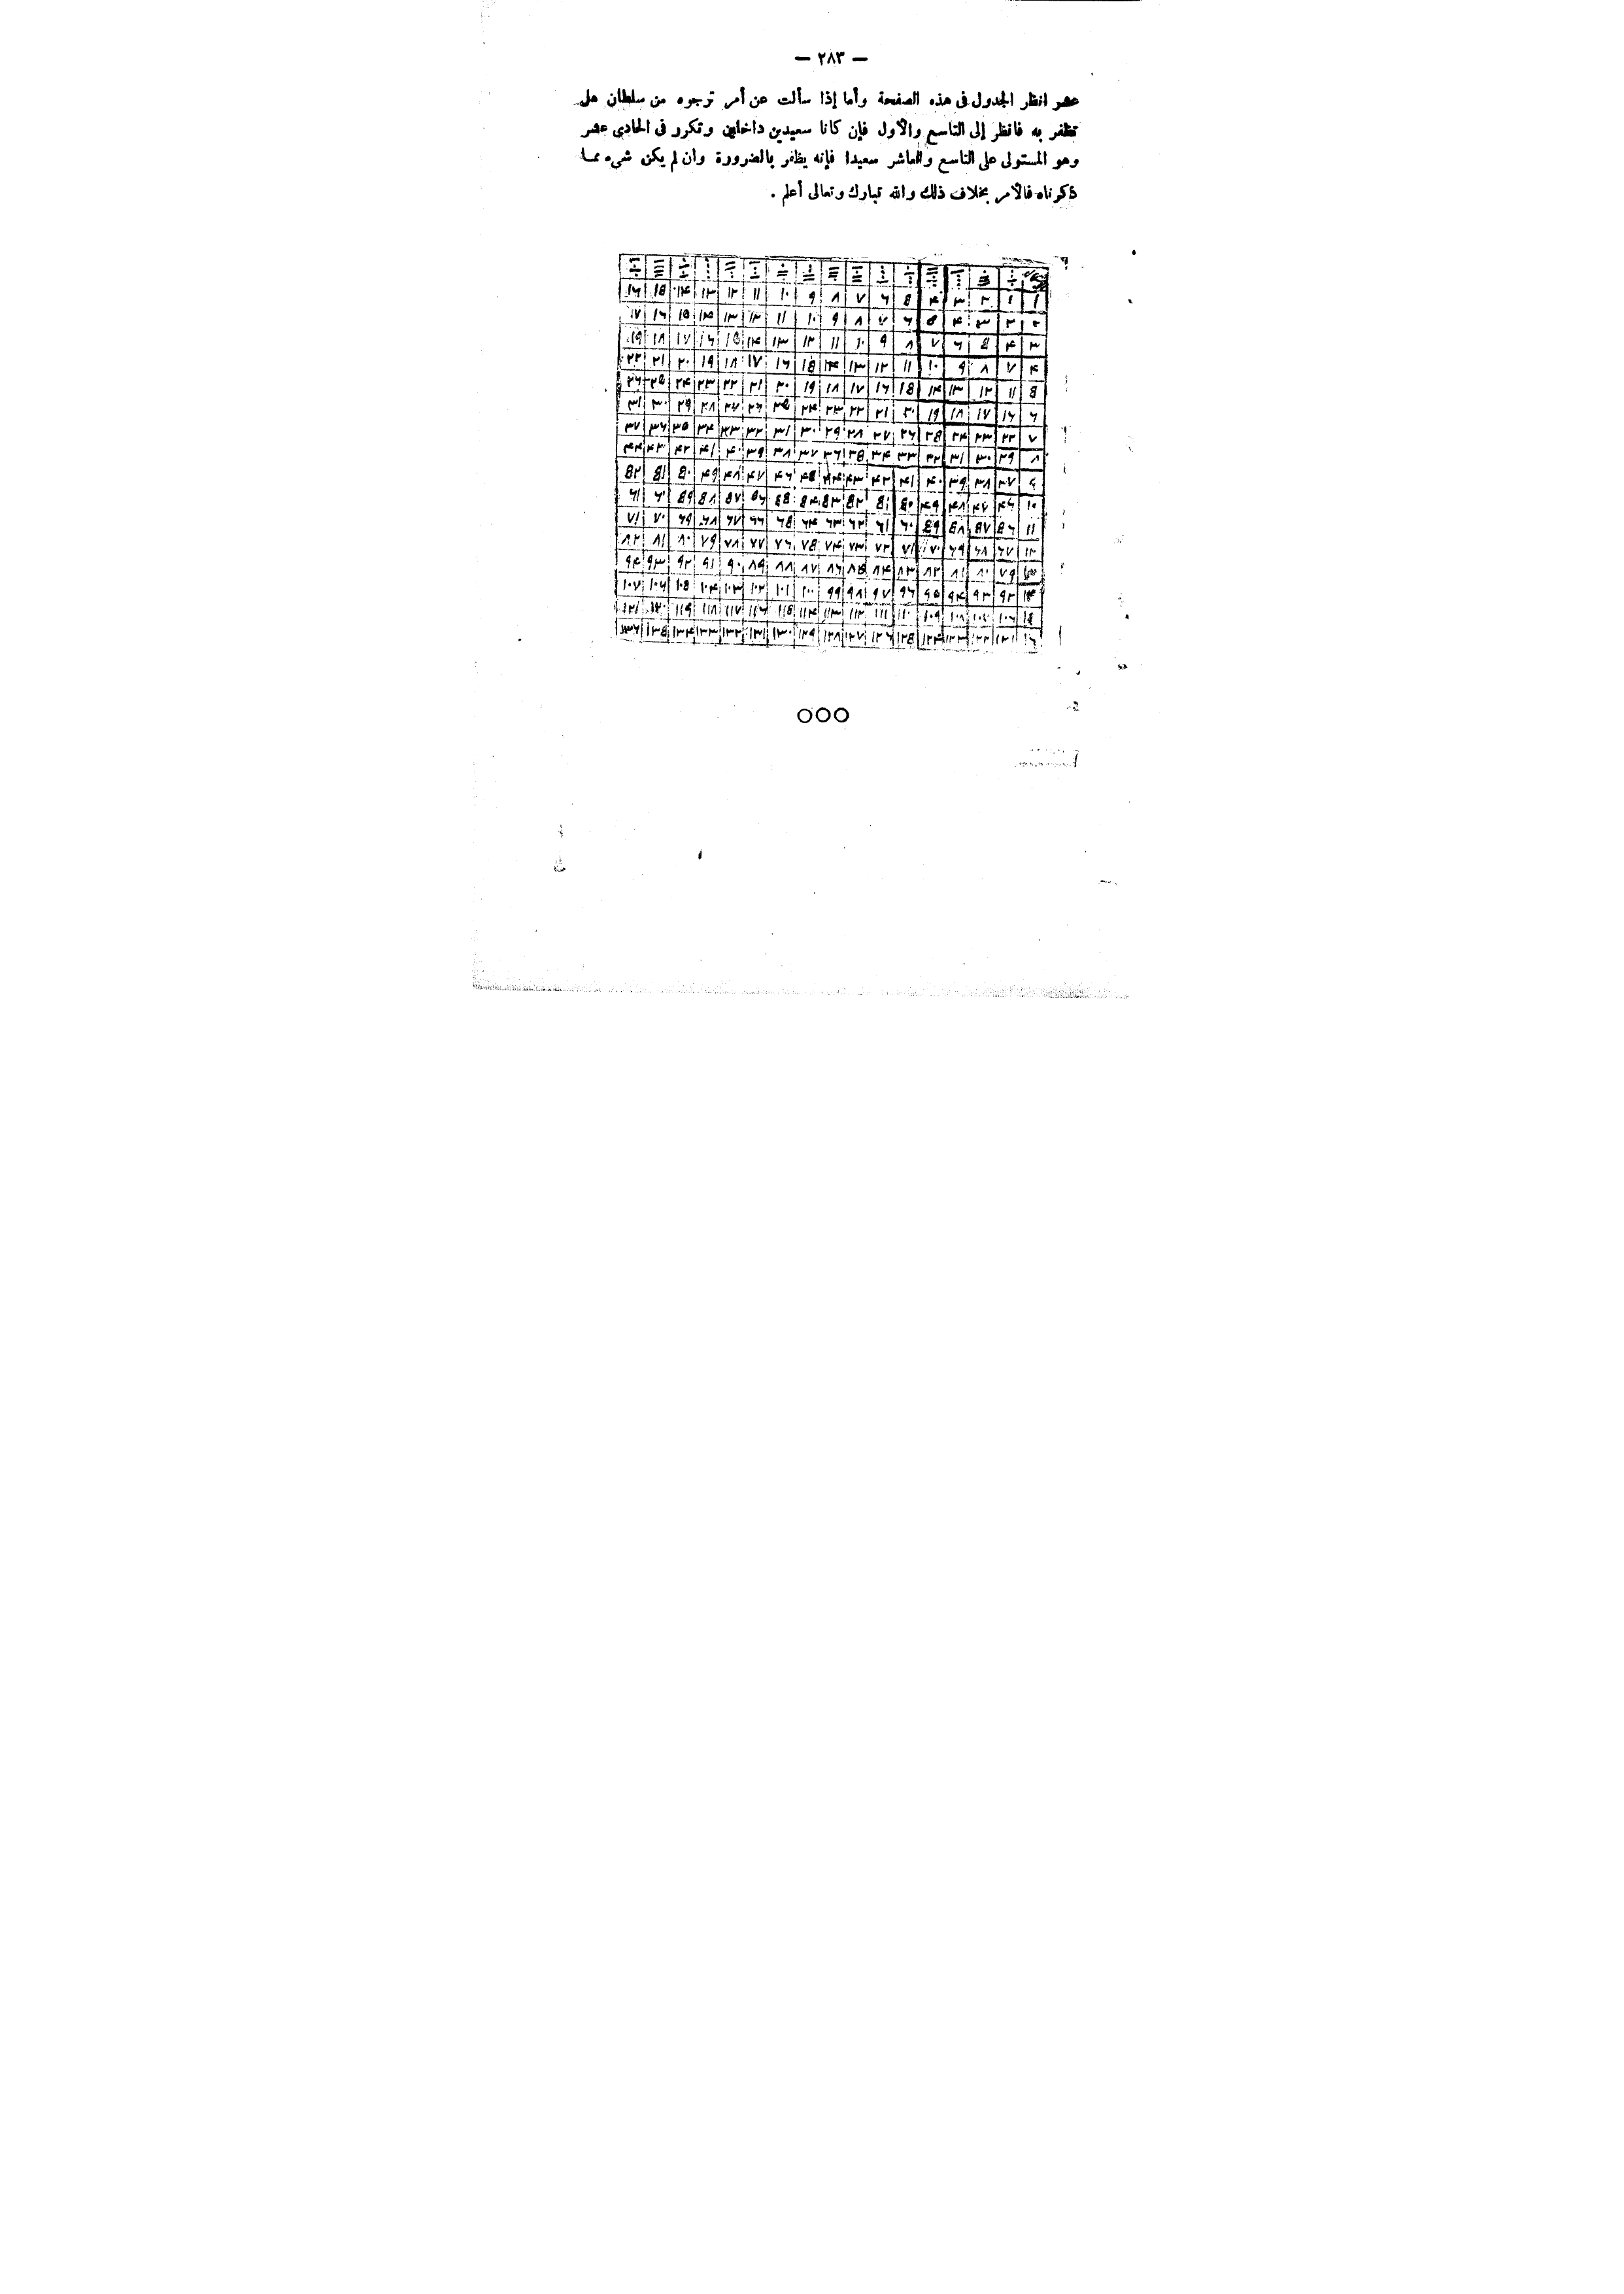 — ٢٨٣ —
عشر انظر الجدول فى هذه الصفحة وأما إذا سألت عن أمر ترجوه من سلطان هل
تظفر به فانظر إلى التاسع والأول فإن كانا سعيدين داخلين وتكرر فى الحادى عشر
وهو المستولى على التاسع والعاشر سعيدا فإنه يظفر بالضرورة وان لم يكن شىء مما
ذكرناه فالأمر بخلاف ذلك والله تبارك وتعالى أعلم .
١ ١ ٢ ٣ ٤ ٥ ٦ ٧ ٨ ٩ ١٠ ١١ ١٢ ١٣ ١٤ ١٥ ١٦
٢ ٢ ٣ ٤ ٥ ٦ ٧ ٨ ٩ ١٠ ١١ ١٢ ١٣ ١٤ ١٥ ١٦ ١٧
٣ ٤ ٥ ٦ ٧ ٨ ٩ ١٠ ١١ ١٢ ١٣ ١٤ ١٥ ١٦ ١٧ ١٨ ١٩
٤ ٧ ٨ ٩ ١٠ ١١ ١٢ ١٣ ١٤ ١٥ ١٦ ١٧ ١٨ ١٩ ٢٠ ٢١ ٢٢
٥ ١١ ١٢ ١٣ ١٤ ١٥ ١٦ ١٧ ١٨ ١٩ ٢٠ ٢١ ٢٢ ٢٣ ٢٤ ٢٥ ٢٦
٦ ١٦ ١٧ ١٨ ١٩ ٢٠ ٢١ ٢٢ ٢٣ ٢٤ ٢٥ ٢٦ ٢٧ ٢٨ ٢٩ ٣٠ ٣١
٧ ٢٢ ٢٣ ٢٤ ٢٥ ٢٦ ٢٧ ٢٨ ٢٩ ٣٠ ٣١ ٣٢ ٣٣ ٣٤ ٣٥ ٣٦ ٣٧
٨ ٢٩ ٣٠ ٣١ ٣٢ ٣٣ ٣٤ ٣٥ ٣٦ ٣٧ ٣٨ ٣٩ ٤٠ ٤١ ٤٢ ٤٣ ٤٤
٩ ٣٧ ٣٨ ٣٩ ٤٠ ٤١ ٤٢ ٤٣ ٤٤ ٤٥ ٤٦ ٤٧ ٤٨ ٤٩ ٥٠ ٥١ ٥٢
١٠ ٤٦ ٤٧ ٤٨ ٤٩ ٥٠ ٥١ ٥٢ ٥٣ ٥٤ ٥٥ ٥٦ ٥٧ ٥٨ ٥٩ ٦٠ ٦١
١١ ٥٦ ٥٧ ٥٨ ٥٩ ٦٠ ٦١ ٦٢ ٦٣ ٦٤ ٦٥ ٦٦ ٦٧ ٦٨ ٦٩ ٧٠ ٧١
١٢ ٦٧ ٦٨ ٦٩ ٧٠ ٧١ ٧٢ ٧٣ ٧٤ ٧٥ ٧٦ ٧٧ ٧٨ ٧٩ ٨٠ ٨١ ٨٢
٧٩ ٨٠ ٨١ ٨٢ ٨٣ ٨٤ ٨٥ ٨٦ ٨٧ ٨٨ ٨٩ ٩٠ ٩١ ٩٢ ٩٣ ٩٤
١٤ ٩٢ ٩٣ ٩٤ ٩٥ ٩٦ ٩٧ ٩٨ ٩٩ ١٠٠ ١٠١ ١٠٢ ١٠٣ ١٠٤ ١٠٥ ١٠٦ ١٠٧
١٥ ١٠٦ ١٠٧ ١٠٨ ١٠٩ ١١٠ ١١١ ١١٢ ١١٣ ١١٤ ١١٥ ١١٦ ١١٧ ١١٨ ١١٩ ١٢٠ ١٢١
١٢١ ١٢٢ ١٢٣ ١٢٤ ١٢٥ ١٢٦ ١٢٧ ١٢٨ ١٢٩ ١٣٠ ١٣١ ١٣٢ ١٣٣ ١٣٤ ١٣٥ ١٣٦